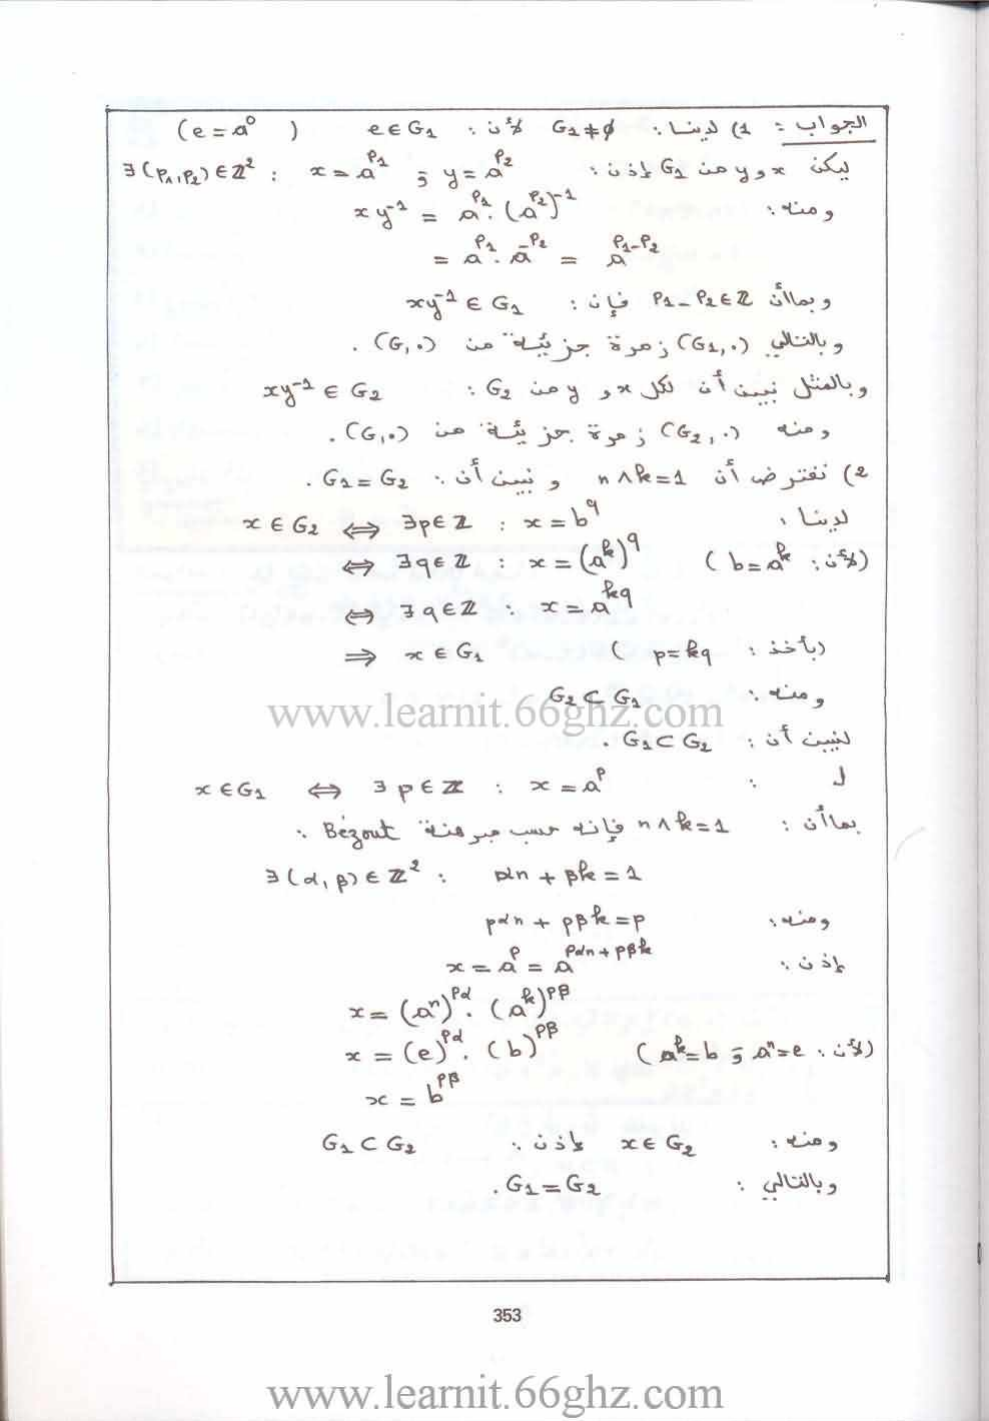 الجواب : 1) لدينا : G₁ ≠ ∅ لأن : e ∈ G₁ (e = a⁰)
ليكن x و y من G₁ إذن : ∃(p₁,p₂) ∈ ℤ² : x = a^p₁ ; y = a^p₂
ومنه : xy⁻¹ = a^p₁ . (a^p₂)⁻¹
= a^p₁ . a^-p₂ = a^(p₁-p₂)
وبما أن p₁ - p₂ ∈ ℤ فإن : xy⁻¹ ∈ G₁
وبالتالي (G₁,.) زمرة جزئية من (G,.) .
وبالمثل نبين أن لكل x و y من G₂ : xy⁻¹ ∈ G₂
ومنه (G₂,.) زمرة جزئية من (G,.) .
2) نفترض أن n∧k=1 و نبين أن : G₁ = G₂ .
لدينا : x ∈ G₂ ⟺ ∃p∈ℤ : x = b^q
⟺ ∃q∈ℤ : x = (a^k)^q (لأن : b = a^k)
⟺ ∃q∈ℤ : x = a^kq
⟹ x ∈ G₁ (بأخذ : p = kq)
ومنه : G₂ ⊂ G₁
www.learnit.66ghz.com
لنبين أن : G₁ ⊂ G₂ .
ل : x ∈ G₁ ⟺ ∃p∈ℤ : x = a^p
بما أن : n∧k=1 فإنه حسب مبرهنة Bézout :
∃(α,β) ∈ ℤ² : αn + βk = 1
ومنه : pαn + pβk = p
إذن : x = a^p = a^(pαn+pβk)
x = (a^n)^pα . (a^k)^pβ
x = (e)^pα . (b)^pβ (لأن : a^n=e و a^k=b)
x = b^pβ
ومنه : x ∈ G₂ إذن : G₁ ⊂ G₂
وبالتالي : G₁ = G₂ .
353
www.learnit.66ghz.com